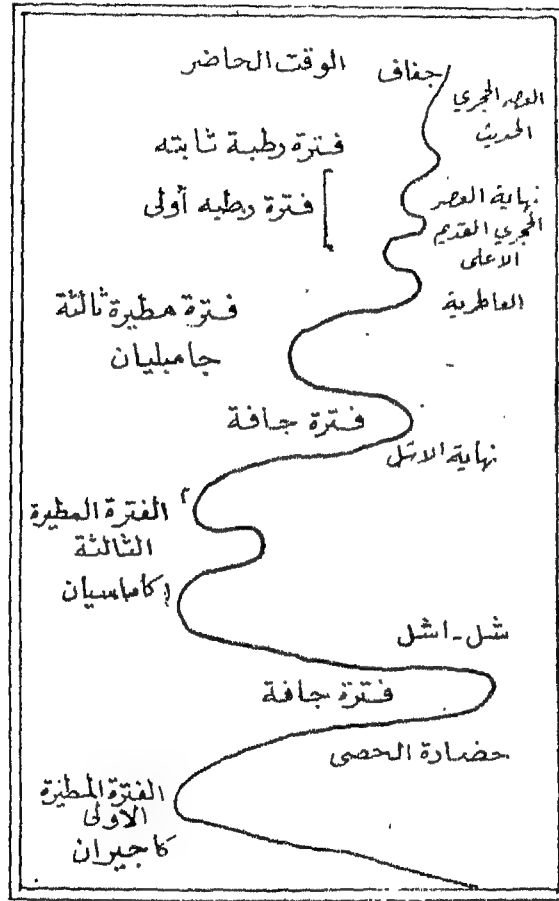 جفاف الوقت الحاضر
العصر الحجري
الحديث
فترة رطبة ثابته
نهاية العصر
الحجري القديم
الاعلى
فترة رطبه أولى
العاطرية
فترة مطيرة ثالثة
جامبليان
فترة جافة
نهاية الاشل
٢ الفترة المطيرة
الثالثة
١ كاماسيان
شل - اشل
فترة جافة
حضارة الحصى
الفترة المطيرة
الاولى
كاجيران